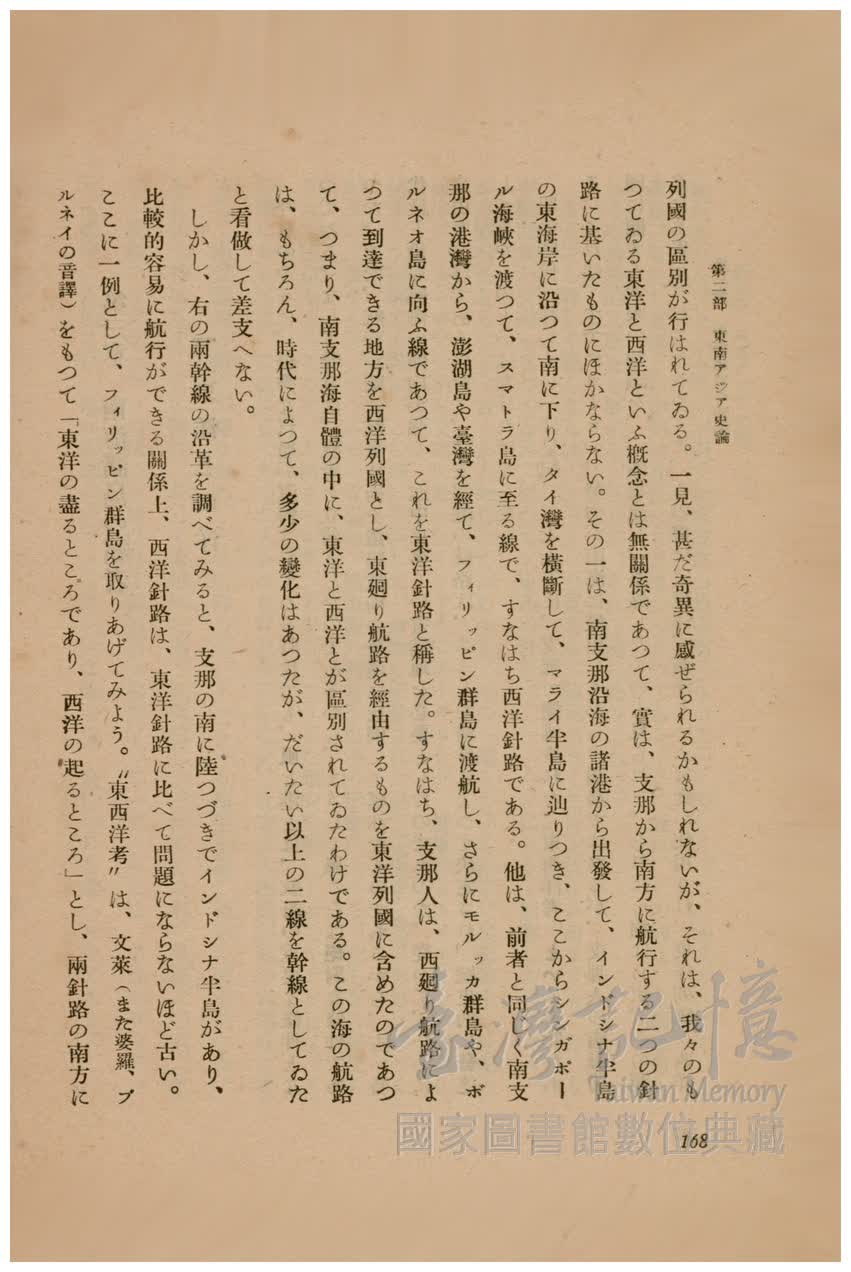 第二部 東南アジア史論
列國の區別が行はれてゐる。一見、甚だ奇異に感ぜられるかもしれないが、それは、我々のも
つてゐる東洋と西洋といふ概念とは無關係であつて、實は、支那から南方に航行する二つの針
路に基いたものにほかならない。その一は、南支那沿海の諸港から出發して、インドシナ半島
の東海岸に沿つて南に下り、タイ灣を橫斷して、マライ半島に辿りつき、ここからシンガポー
ル海峽を渡つて、スマトラ島に至る線で、すなはち西洋針路である。他は、前者と同じく南支
那の港灣から、澎湖島や臺灣を經て、フィリッピン群島に渡航し、さらにモルッカ群島や、ボ
ルネオ島に向ふ線であつて、これを東洋針路と稱した。すなはち、支那人は、西廻り航路によ
つて到達できる地方を西洋列國とし、東廻り航路を經由するものを東洋列國に含めたのであつ
て、つまり、南支那海自體の中に、東洋と西洋とが區別されてゐたわけである。この海の航路
は、もちろん、時代によつて、多少の變化はあつたが、だいたい以上の二線を幹線としてゐた
と看做して差支へない。
しかし、右の兩幹線の沿革を調べてみると、支那の南に陸つづきでインドシナ半島があり、
比較的容易に航行ができる關係上、西洋針路は、東洋針路に比べて問題にならないほど古い。
ここに一例として、フィリッピン群島を取りあげてみよう。〃東西洋考〃は、文萊（また婆羅、ブ
ルネイの音譯）をもつて「東洋の盡るところであり、西洋の起るところ」とし、兩針路の南方に
168
臺灣記憶
Taiwan Memory
國家圖書館數位典藏